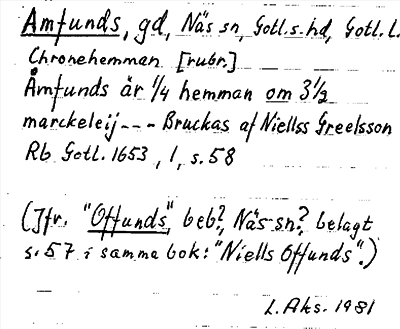 Amfunds, gd, Näs sn, Gotl.s.hd, Gotl. l.
Chronehemman [rubr.]
Åmfunds är 1/4 hemman om 3 1/2
marckeleij --- Bruckas af Niellss Greelsson
Rb Gotl. 1653, 1, s. 58
(Jfr. "Offunds", beb?, Näs sn?, belagt
s. 57 i samma bok: "Niells Offunds".)
L. Aks. 1981